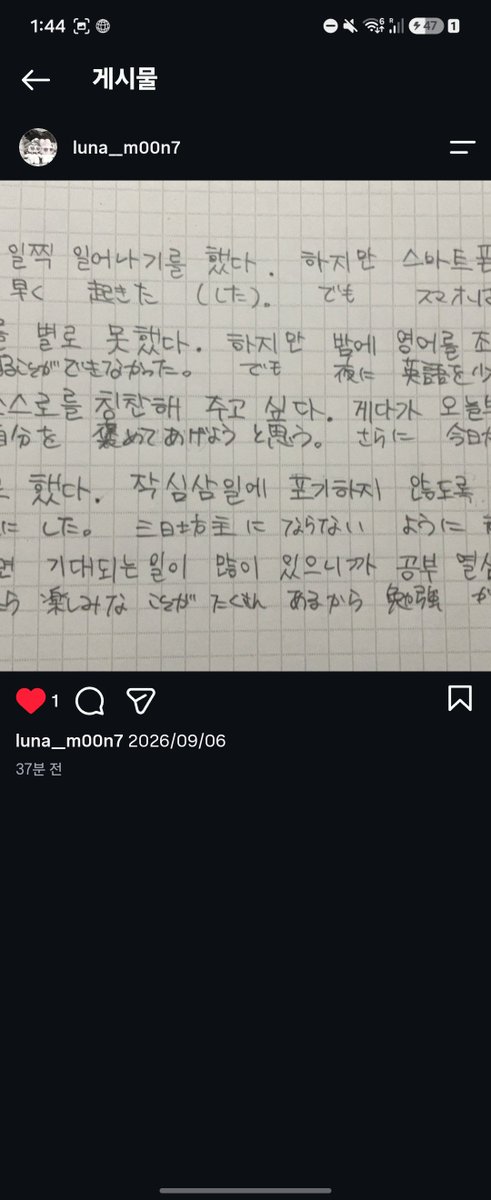 1:44 47 1
게시물
luna__m00n7
일찍 일어나기를 했다. 하지만 스마트폰
早く 起きた (した)。 でも スマホに
를 별로 못했다. 하지만 밤에 영어를 조
することができなかった。 でも 夜に 英語を 少
스스로를 칭찬해 주고 싶다. 게다가 오늘부
自分を 褒めてあげようと思う。 さらに 今日か
로 했다. 작심삼일에 포기하지 않도록
にした。 三日坊主に ならない ように
면 기대되는 일이 많이 있으니까 공부 열심
ら 楽しみな ことが たくさん あるから 勉強 が
1
luna__m00n7 2026/09/06
37분 전